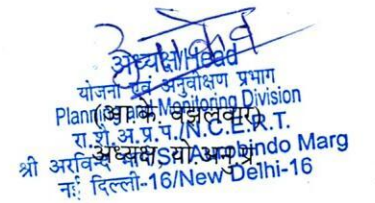 अध्यक्ष/Head
योजना एवं अनुवीक्षण प्रभाग
Planning and Monitoring Division
(आर.के. वझलवार)
रा.शै.अ.प्र.प./N.C.E.R.T.
अध्यक्ष, यो.अनु.प्र.
श्री अरविन्द मार्ग/Sri Aurobindo Marg
नई दिल्ली-16/New Delhi-16